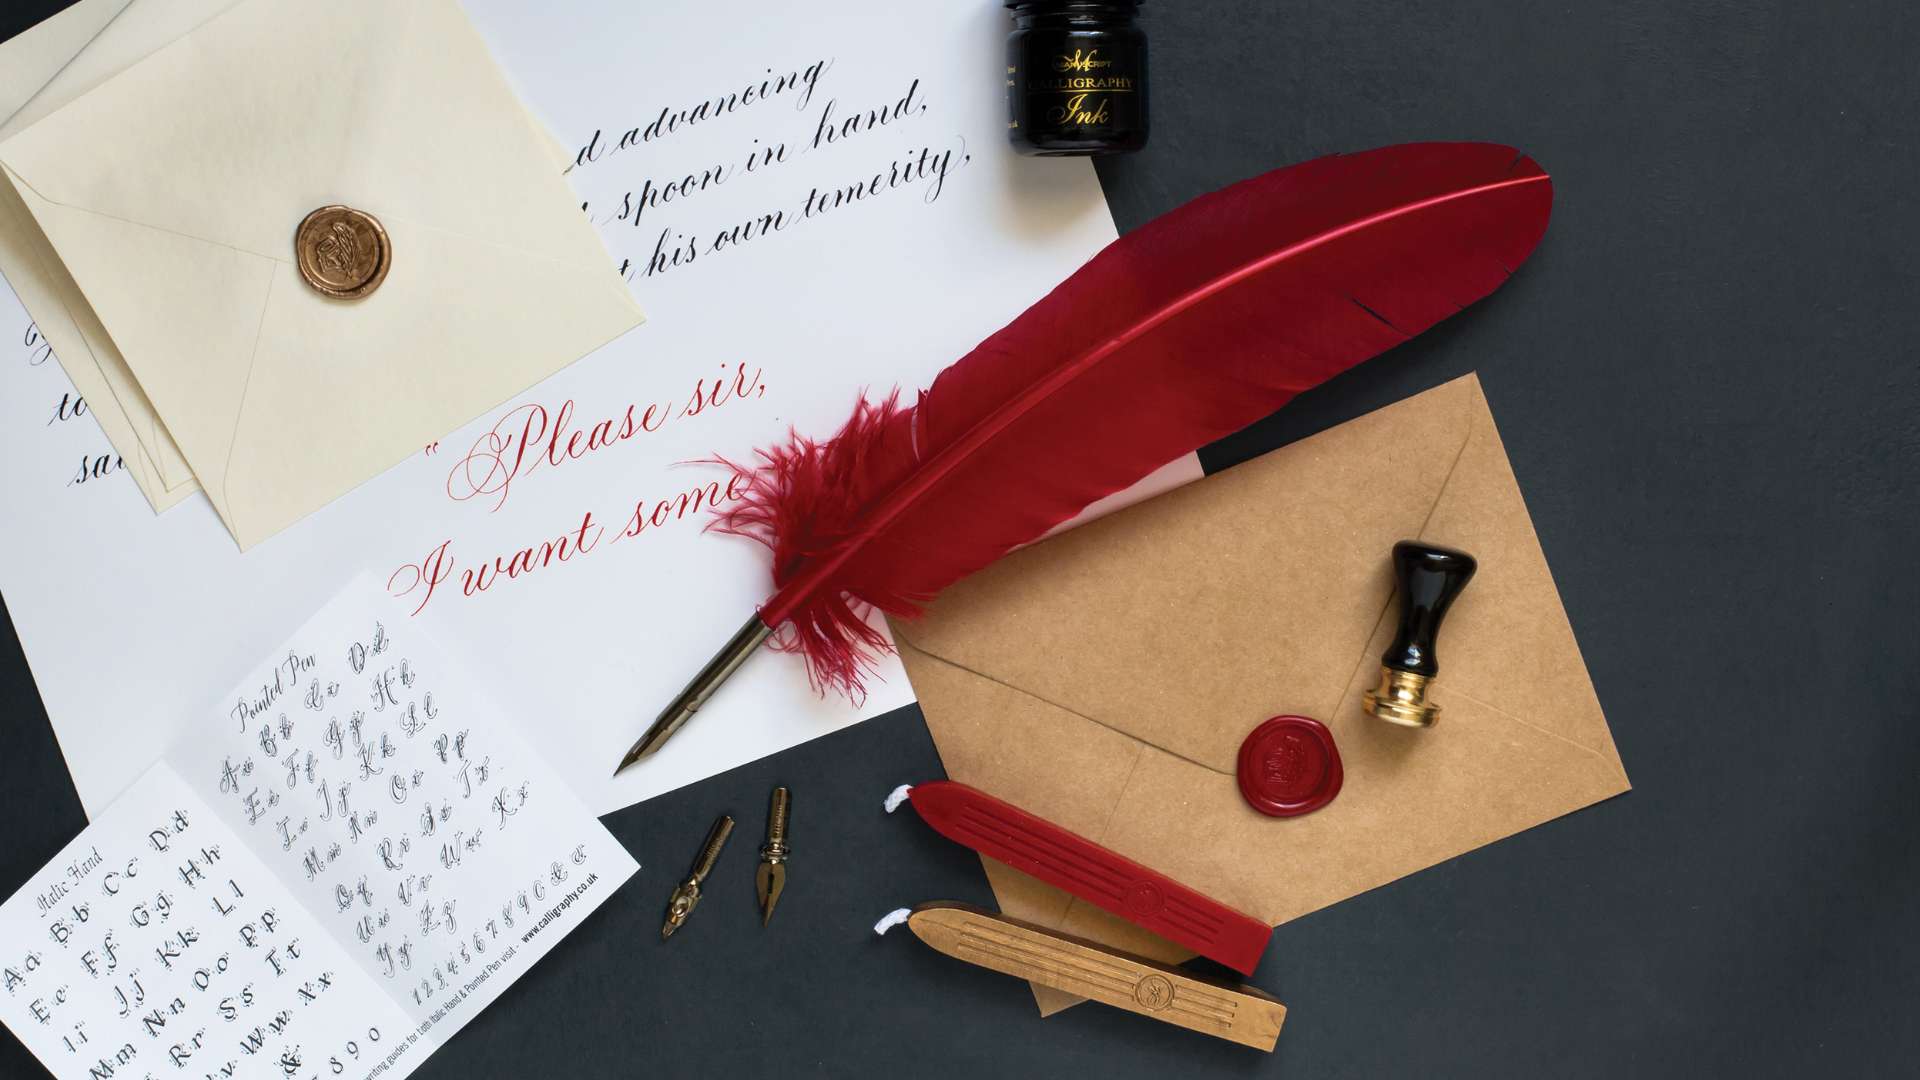 d advancing
spoon in hand,
t his own temerity,
to
sai
"Please sir,
I want some
MANUSCRIPT
CALLIGRAPHY
Ink
Pointed Pen
Aa Bb Cc Dd
Ee Ff Gg Hh
Ii Jj Kk Ll
Mm Nn Oo Pp
Qq Rr Ss Tt
Uu Vv Ww Xx
Yy Zz
1 2 3 4 5 6 7 8 9 0 & @
writing guides for both Italic Hand & Pointed Pen visit - www.calligraphy.co.uk
Italic Hand
Aa Bb Cc Dd
Ee Ff Gg Hh
Ii Jj Kk Ll
Mm Nn Oo Pp
Rr Ss Tt
v Ww Xx
&
7 8 9 0